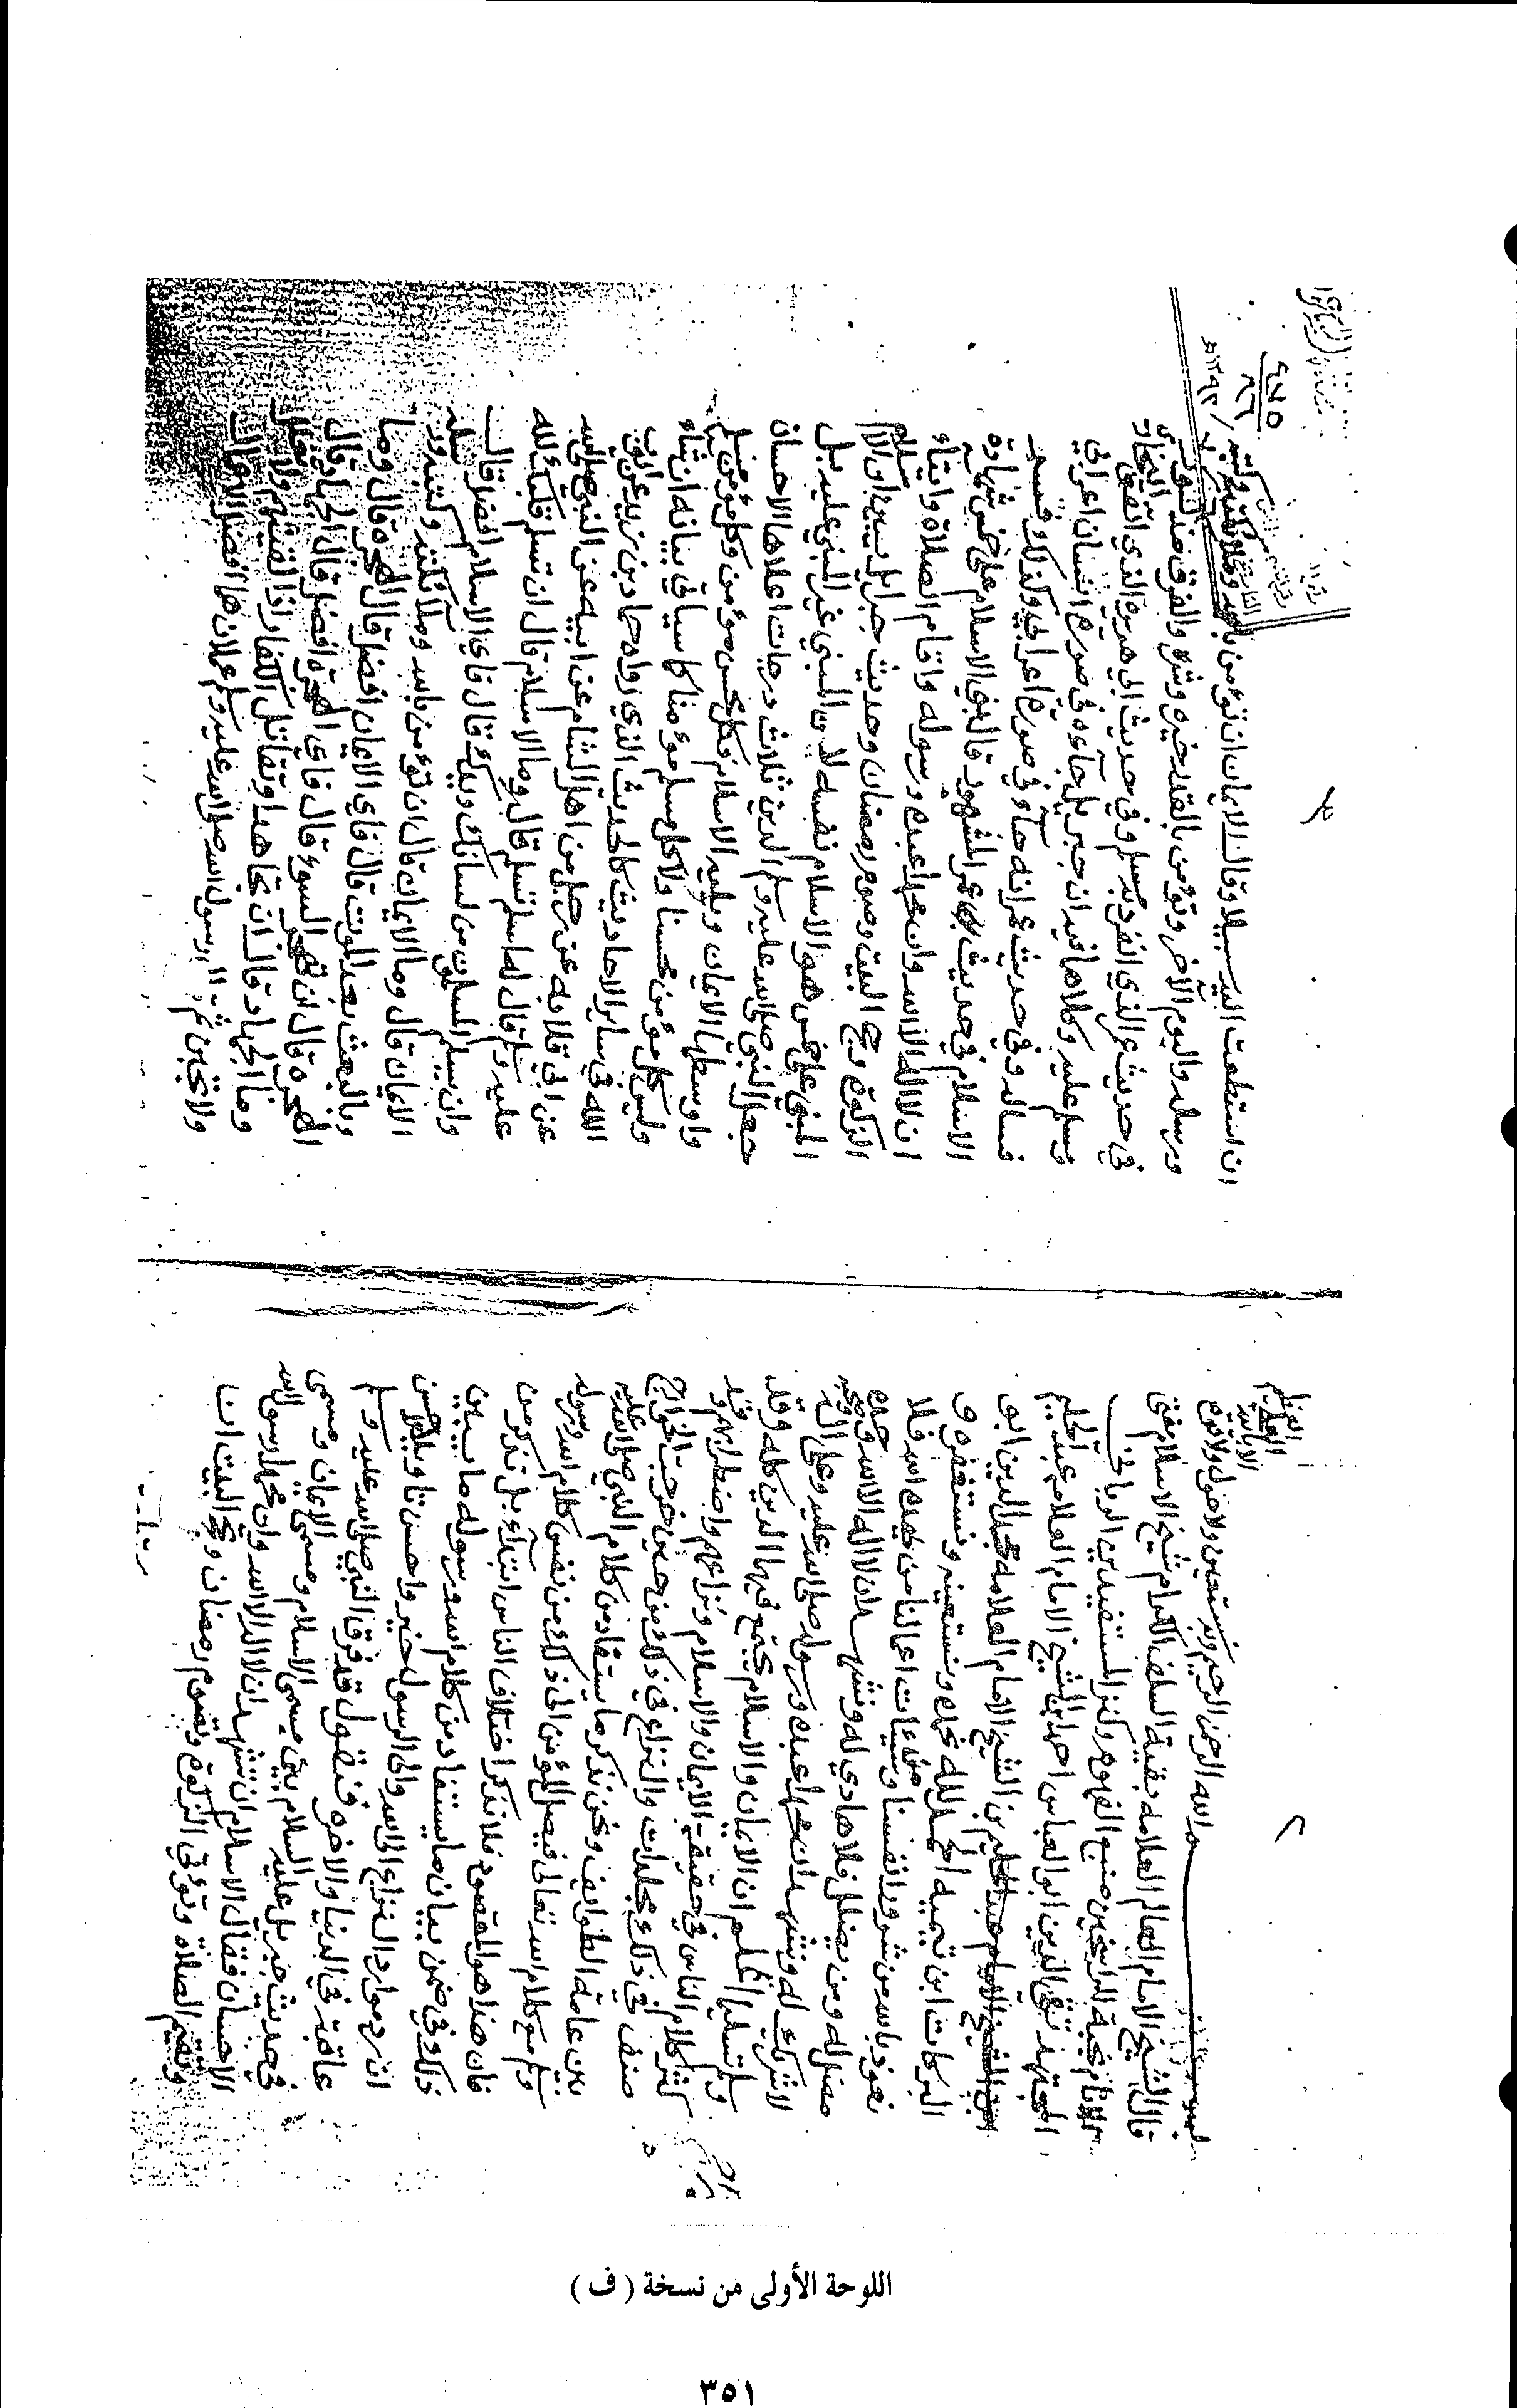 بسم الله الرحمن الرحيم وبه نستعين ولا حول ولا قوة
الا بالله
العلي
العظيم
قال الشيخ الامام العالم العلامه بقية السلف الكرام شيخ الاسلام مفتي
الانام نخبة الراسخين منبع العلوم وكنز المستفيدين الرباني
المجتهد تقي الدين ابو العباس احمد بن الشيخ الامام العلامه عبد الحليم
ابن الشيخ الامام العلامه مجد الدين ابو
البركات ابن تيميه الحمد لله نحمده ونستعينه ونستغفره و
نعوذ بالله من شرور انفسنا وسيئات اعمالنا من يهده الله فلا
مضل له ومن يضلل فلا هادي له ونشهد ان لا اله الا الله وحده
لا شريك له ونشهد ان محمدا عبده ورسوله صلى الله عليه وعلى اله
وسلم تسليما اعلم ان الايمان والاسلام يجتمع فيهما الدين كله وقد
كثر كلام الناس في حقيقة الايمان والاسلام ونزاعهم واضطرابهم وقد
صنف في ذلك مجلدات والنزاع في ذلك من حين خرجت الخوارج
بين عامة الطوايف ونحن نذكر ما يستفاد من كلام النبي صلى الله عليه
وسلم مع كلام الله تعالى فيصل المؤمن الى ذلك من نفس كلام الله ورسوله
فان هذا هو المقصود فلا نذكر اختلاف الناس ابتداء بل نذكر من
ذلك في ضمن بيان ما يستفاد من كلام الله ورسوله ما يبين
ان رد موارد النزاع الى الله والى الرسول خير واحسن تاويلا واحسن
عاقبة في الدنيا والاخره فنقول قد فرق النبي صلى الله عليه وسلم
في حديث جبريل عليه السلام بين مسمى الاسلام ومسمى الايمان ومسمى
الاحسان فقال الاسلام ان تشهد ان لا اله الا الله وان محمدا رسول الله
وتقيم الصلاة وتؤتي الزكوة وتصوم رمضان وتحج البيت ان
ان استطعت اليه سبيلا وقال الايمان ان تؤمن بالله وملائكته وكتبه
ورسله واليوم الاخر وتؤمن بالقدر خيره وشره والفرق مذكور
في حديث عمر الذي انفرد به مسلم وفي حديث ابي هريرة الذي اتفق البخاري
ومسلم عليه وكلاهما فيه ان جبريل جاءه في صورة انسان اعرابي
فساله وفي حديث عمر انه جاءه في صورة اعرابي وكذلك فسر
الاسلام في حديث ابن عمر المشهور قال بني الاسلام على خمس شهادة
ان لا اله الا الله وان محمدا عبده ورسوله واقام الصلاة وايتاء
الزكوة وحج البيت وصوم رمضان وحديث جبرايل يبين ان الاسلام
المبني على خمس هو الاسلام نفسه لان المبني غير المبني عليه بل
جعل النبي صلى الله عليه وسلم الدين ثلاث درجات اعلاها الاحسان
واوسطها الايمان ويليه الاسلام فكل محسن مؤمن وكل مؤمن مسلم
وليس كل مؤمن محسنا ولا كل مسلم مؤمنا كما سياتي بيانه ان شاء
الله في ساير الاحاديث كالحديث الذي رواه حماد بن زيد عن ايوب
عن ابي قلابه عن رجل من اهل الشام عن ابيه عن النبي صلى الله
عليه وسلم قال له اسلم تسلم قال وما الاسلام قال ان تسلم قلبك لله
وان يسلم المسلمون من لسانك ويدك قال فاي الاسلام افضل قال
الايمان قال وما الايمان قال ان تؤمن بالله وملائكته وكتبه ورسله
وبالبعث بعد الموت قال فاي الايمان افضل قال الهجرة قال وما
الهجرة قال ان تهجر السوء قال فاي الهجرة افضل قال الجهاد قال
وما الجهاد قال ان تجاهد او تقاتل الكفار اذا لقيتهم ولا تغلل
ولا تجبن ثم قال رسول الله صلى الله عليه وسلم عملان هما افضل الاعمال
اللوحة الأولى من نسخة ( ف )
٣٥١